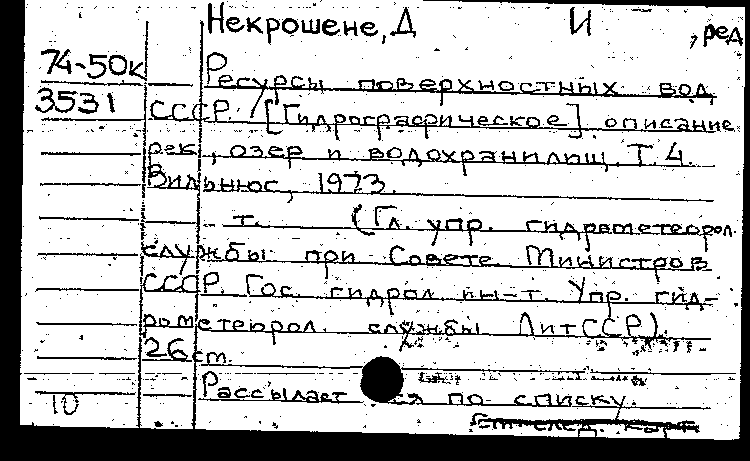 Некрошене, Д И , ред
74-50к Ресурсы поверхностных вод
3531 СССР. / [Гидрографическое] описание
рек, озер и водохранилищ. Т. 4.
Вильнюс, 1973.
т. (Гл. упр. гидрометеорол.
службы при Совете Министров
СССР. Гос. гидрол. ин-т. Упр. гид-
рометеорол. службы ЛитССР).
26 см.
Рассылается по списку.
10